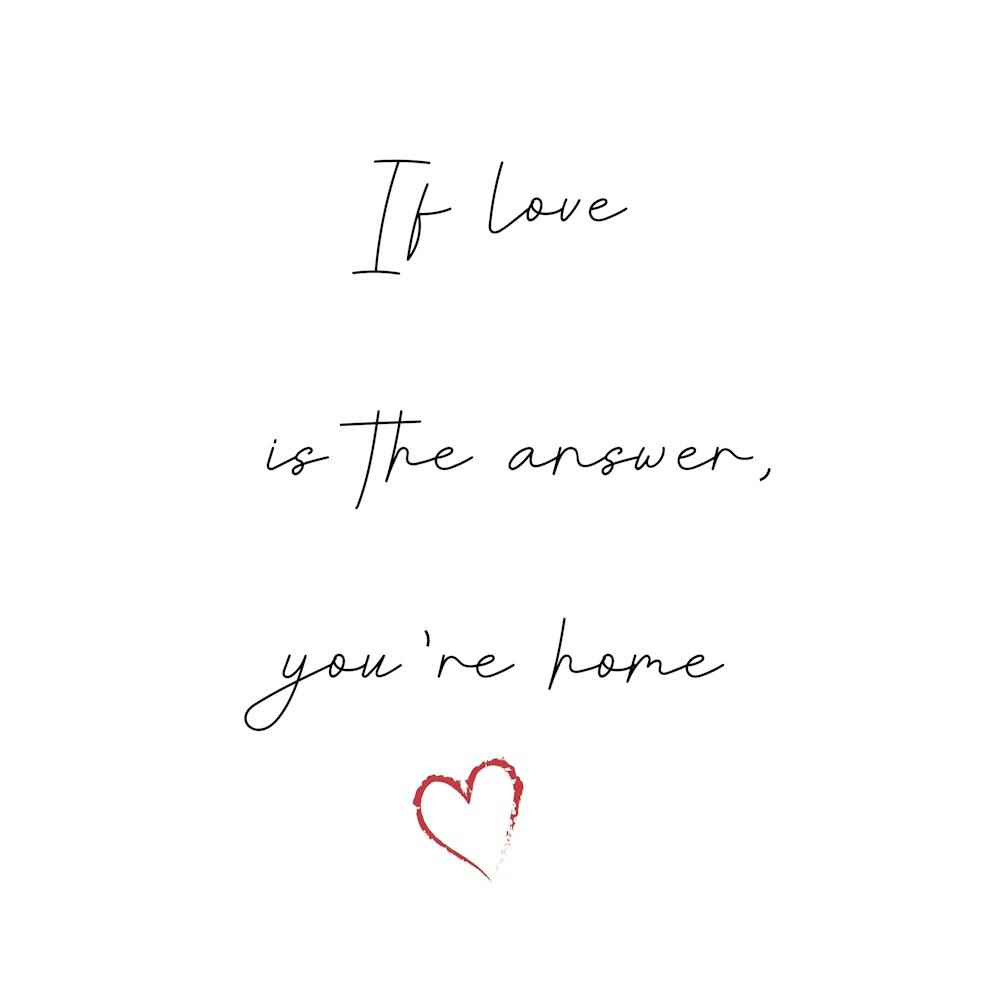 If love
is the answer,
you're home